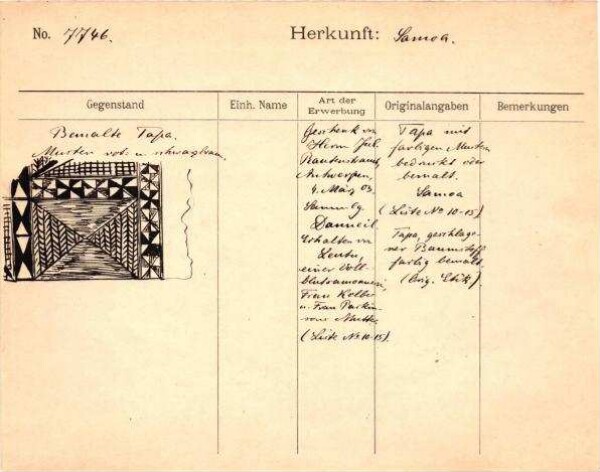 No. 7746.
Herkunft: Samoa.
Gegenstand
Einh. Name
Art der
Erwerbung
Originalangaben
Bemerkungen
Bemalte Tapa.
Muster rot- u. schwarzbraun
Geschenk v.
Herrn Jul.
Rautenstrauch,
Antwerpen,
4. März 03.
Sammlg.
Danneil
Erhalten v.
einer Voll-
blutsamoanerin,
Frau Kolbe
u. Frau Parkin-
sons Mutter
(Liste No 10-15).
Tapa mit
farbigen Mustern
bedruckt oder
bemalt.
Samoa
(Liste No 10-15)
Tapa, geschlage-
ner Baumstoff,
farbig bemalt
(Orig. Etik).